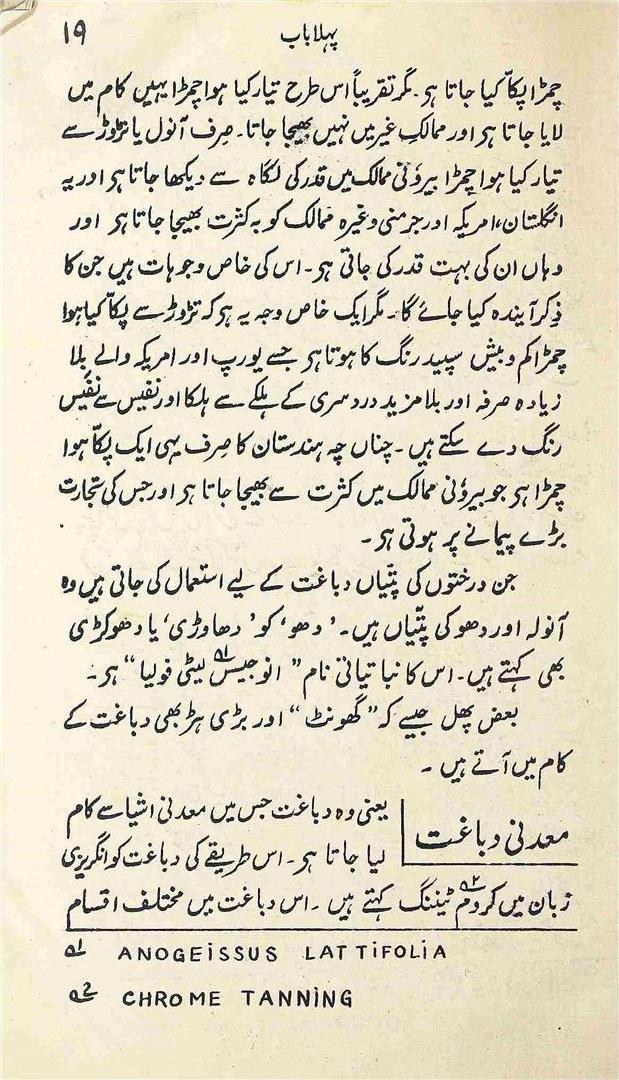 پہلا باب
۱۹
چمڑا پکّا کیا جاتا ہر۔ مگر تقریباً اس طرح تیار کیا ہوا چمڑا یہیں کام میں
لایا جاتا ہر اور ممالکِ غیر میں نہیں بھیجا جاتا۔ صِرف آنول یا تڑوڑ سے
تیار کیا ہوا چمڑا بیرؤنی ممالک میں قدر کی نگاہ سے دیکھا جاتا ہر اور یہ
انگلستان، امریکہ اور جرمنی وغیرہ ممالک کو بہ کثرت بھیجا جاتا ہر اور
وہاں ان کی بہت قدر کی جاتی ہر۔ اس کی خاص وجوہات ہیں جن کا
ذِکر آیندہ کیا جائے گا۔ مگر ایک خاص وجہ یہ ہر کہ تڑوڑ سے پکّا کیا ہوا
چمڑا کم و بیش سپید رنگ کا ہوتا ہر جسے یورپ اور امریکہ والے بِلا
زیادہ صرفہ اور بلا مزید دردسری کے ہلکے سے ہلکا اور نفیس سے نفیس
رنگ دے سکتے ہیں۔ چناں چہ ہندستان کا صِرف یہی ایک پکّا ہوا
چمڑا ہر جو بیرؤنی ممالک میں کثرت سے بھیجا جاتا ہر اور جس کی تجارت
بڑے پیمانے پر ہوتی ہر۔
جن درختوں کی پتّیاں دباغت کے لیے استعمال کی جاتی ہیں وہ
آنولہ اور دھو کی پتّیاں ہیں۔ ’دھو‘ کو ’دھاوڑی‘ یا دھوکڑی
بھی کہتے ہیں۔ اس کا نباتیاتی نام ”انوجیس لیٹی فولیا“ ؁۱ ہر۔
بعض پھل جیسے کہ ”گھونٹ“ اور بڑی ہڑ بھی دباغت کے
کام میں آتے ہیں۔
معدنی دباغت
یعنی وہ دباغت جس میں معدنی اشیا سے کام
لیا جاتا ہر۔ اس طریقے کی دباغت کو انگریزی
زبان میں کروم ٹیننگ ؁۲ کہتے ہیں۔ اس دباغت میں مختلف اقسام
؁۱ ANOGEISSUS LATTIFOLIA
؁۲ CHROME TANNING